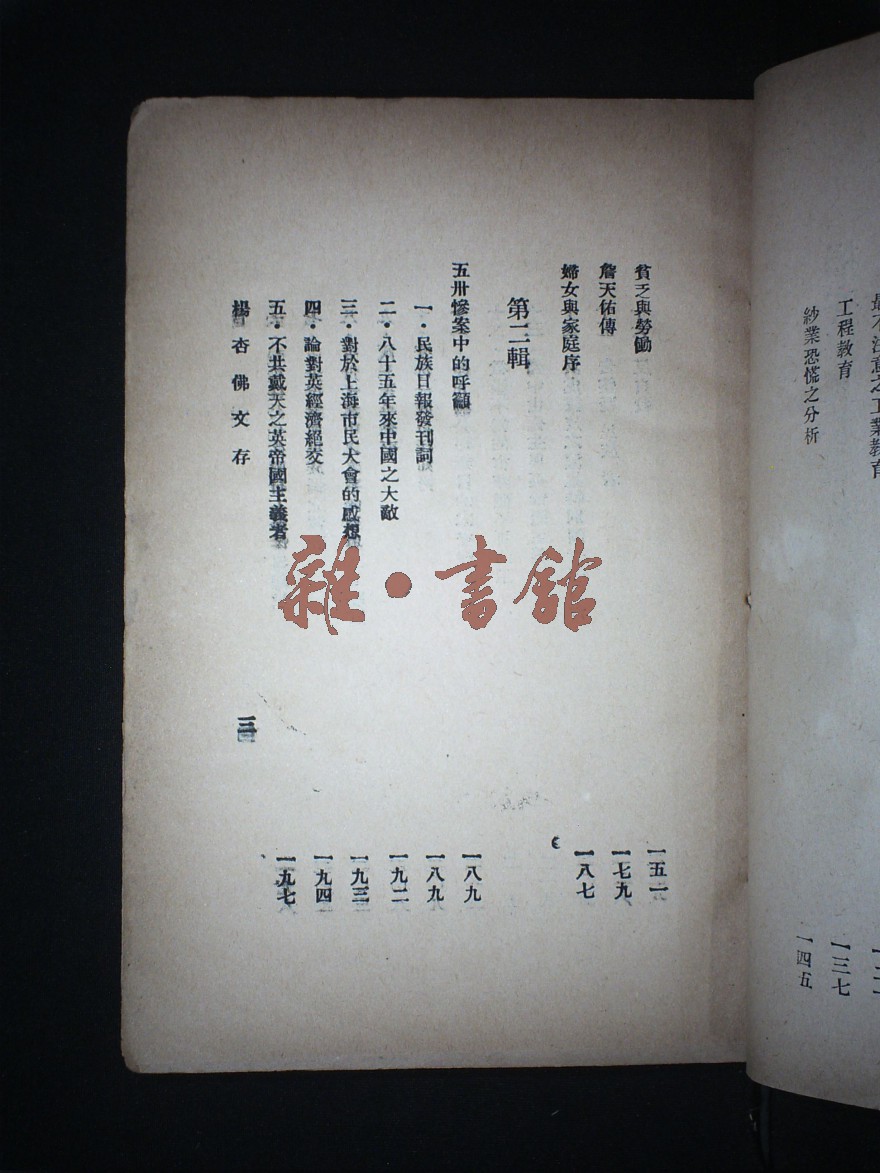 工程教育
一三七
紗業恐慌之分析
一四五
貧乏與勞働
一五一
詹天佑傳
一七九
婦女與家庭序
一八七
第二輯
五卅慘案中的呼籲
一八九
一・民族日報發刊詞
一八九
二・八十五年來中國之大敵
一九二
三・對於上海市民大會的感想
一九三
四・論對英經濟絕交
一九四
五・不共戴天之英帝國主義者
一九七
楊杏佛文存
雜・書館